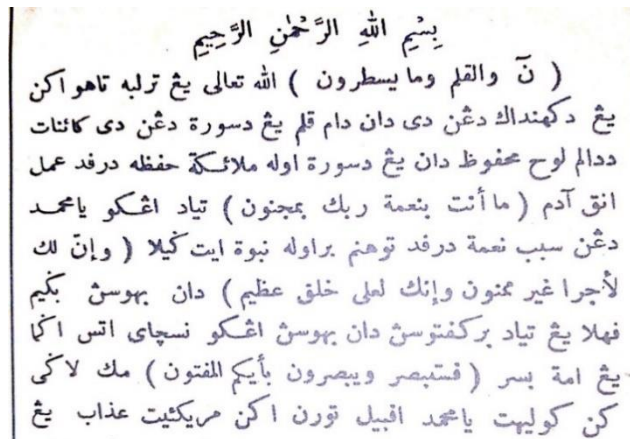 بِسْمِ اللهِ الرَّحْمٰنِ الرَّحِيمِ
( نٓ والقلم وما يسطرون ) الله تعالى يڠ ترلبه تاهو اكن
يڠ دكهنداك دڠن دى دان دام قلم يڠ دسورة دڠن دى كائنات
ددالم لوح محفوظ دان يڠ دسورة اوله ملائكة حفظه درفد عمل
انق آدم ( ما أنت بنعمة ربك بمجنون ) تياد اڠكو يا محمد
دڠن سبب نعمة درفد توهنم براوله نبوة ايت كيلا ( وإنّ لك
لأجرا غير ممنون وإنك لعلى خلق عظيم ) دان بهوسڽ بݢيم
فهلا يڠ تياد بركفتوسن دان بهوسڽ اڠكو نسچاى اتس اݢام
يڠ امة بسر ( فستبصر ويبصرون بأيكم المفتون ) مك لاݢى
كن كوليهت يا محمد افبيل تورن اكن مريكئيت عذاب يڠ